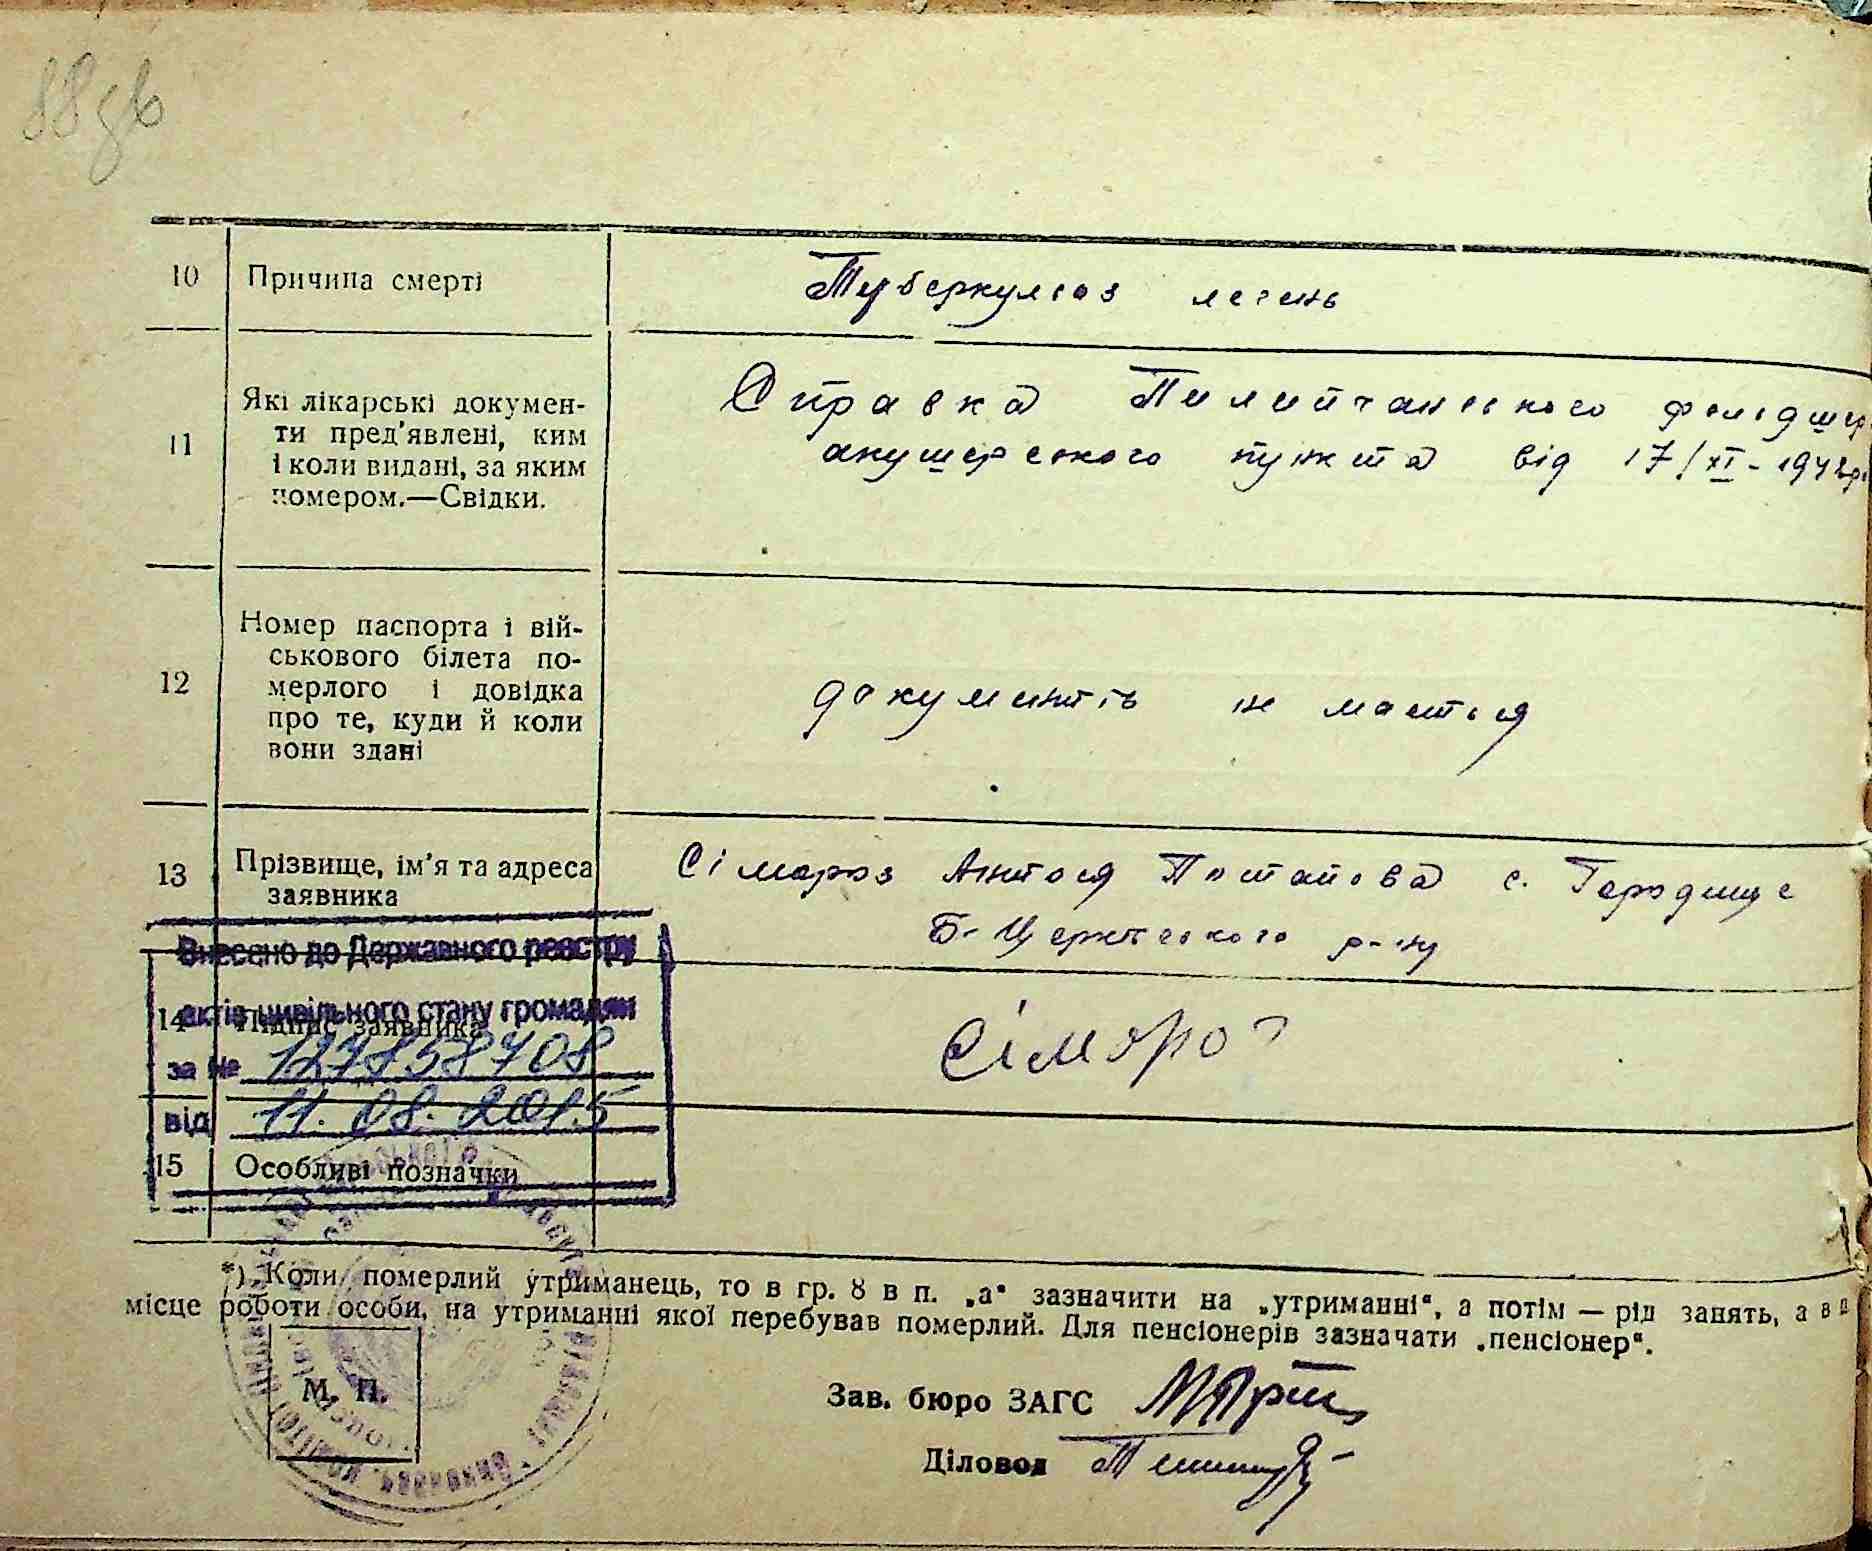 88зв
10 Причина смерті Туберкулєоз легень
11 Які лікарські докумен-
ти пред'явлені, ким
і коли видані, за яким
номером.—Свідки.
Справка Пилипчанського фельдшер
акушерського пункта від 17/XI-
12 Номер паспорта і вій-
ськового білета по-
мерлого і довідка
про те, куди й коли
вони здані
документів не мається
13 Прізвище, ім'я та адреса
заявника
Сімароз Антося Потапова с. Городище
Б-Церківського р-ну
Внесено до Державного реєстру
актів цивільного стану громадян
14 Підпис заявника
за № 127858708
від 11.08.2015
15 Особливі позначки
*) Коли померлий утриманець, то в гр. 8 в п. „а“ зазначити на „утриманні“, а потім — рід занять, а в п
місце роботи особи, на утриманні якої перебував померлий. Для пенсіонерів зазначати „пенсіонер“.
М. П.
Зав. бюро ЗАГС
Діловод